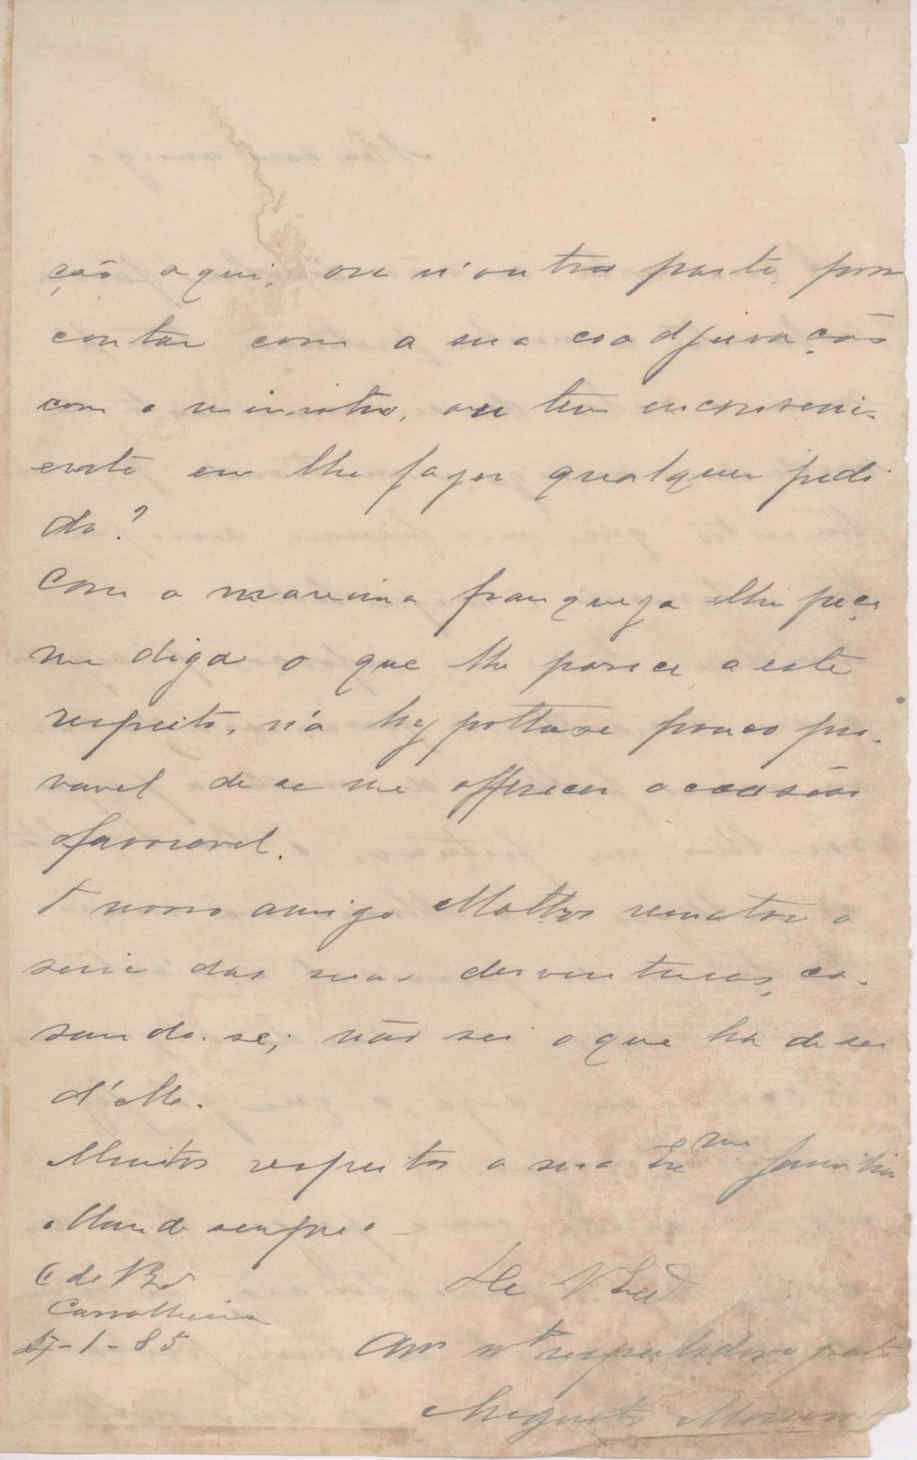 ção aqui, ou n'outra parte, poss
contar com a sua coadjuvação
com o ministro, ou tem inconveni-
ente em lhe fazer qualquer pedi
do?
Com a maxima franqueza lhe peço
me diga o que lhe parece a este
respeito, n'a hypothese pouco pro-
vavel de se me offerecer occasião
favoravel.
O nosso amigo Mattos rematou a
serie das suas desventuras, ca-
sando-se; não sei o que ha de ser
d'elle.
Muitos respeitos a sua Exma familia
e Mande sempre o
C de V.
Carvalheira
De V. Exa
17-1-85
Amo mto respeitador e
Augusto